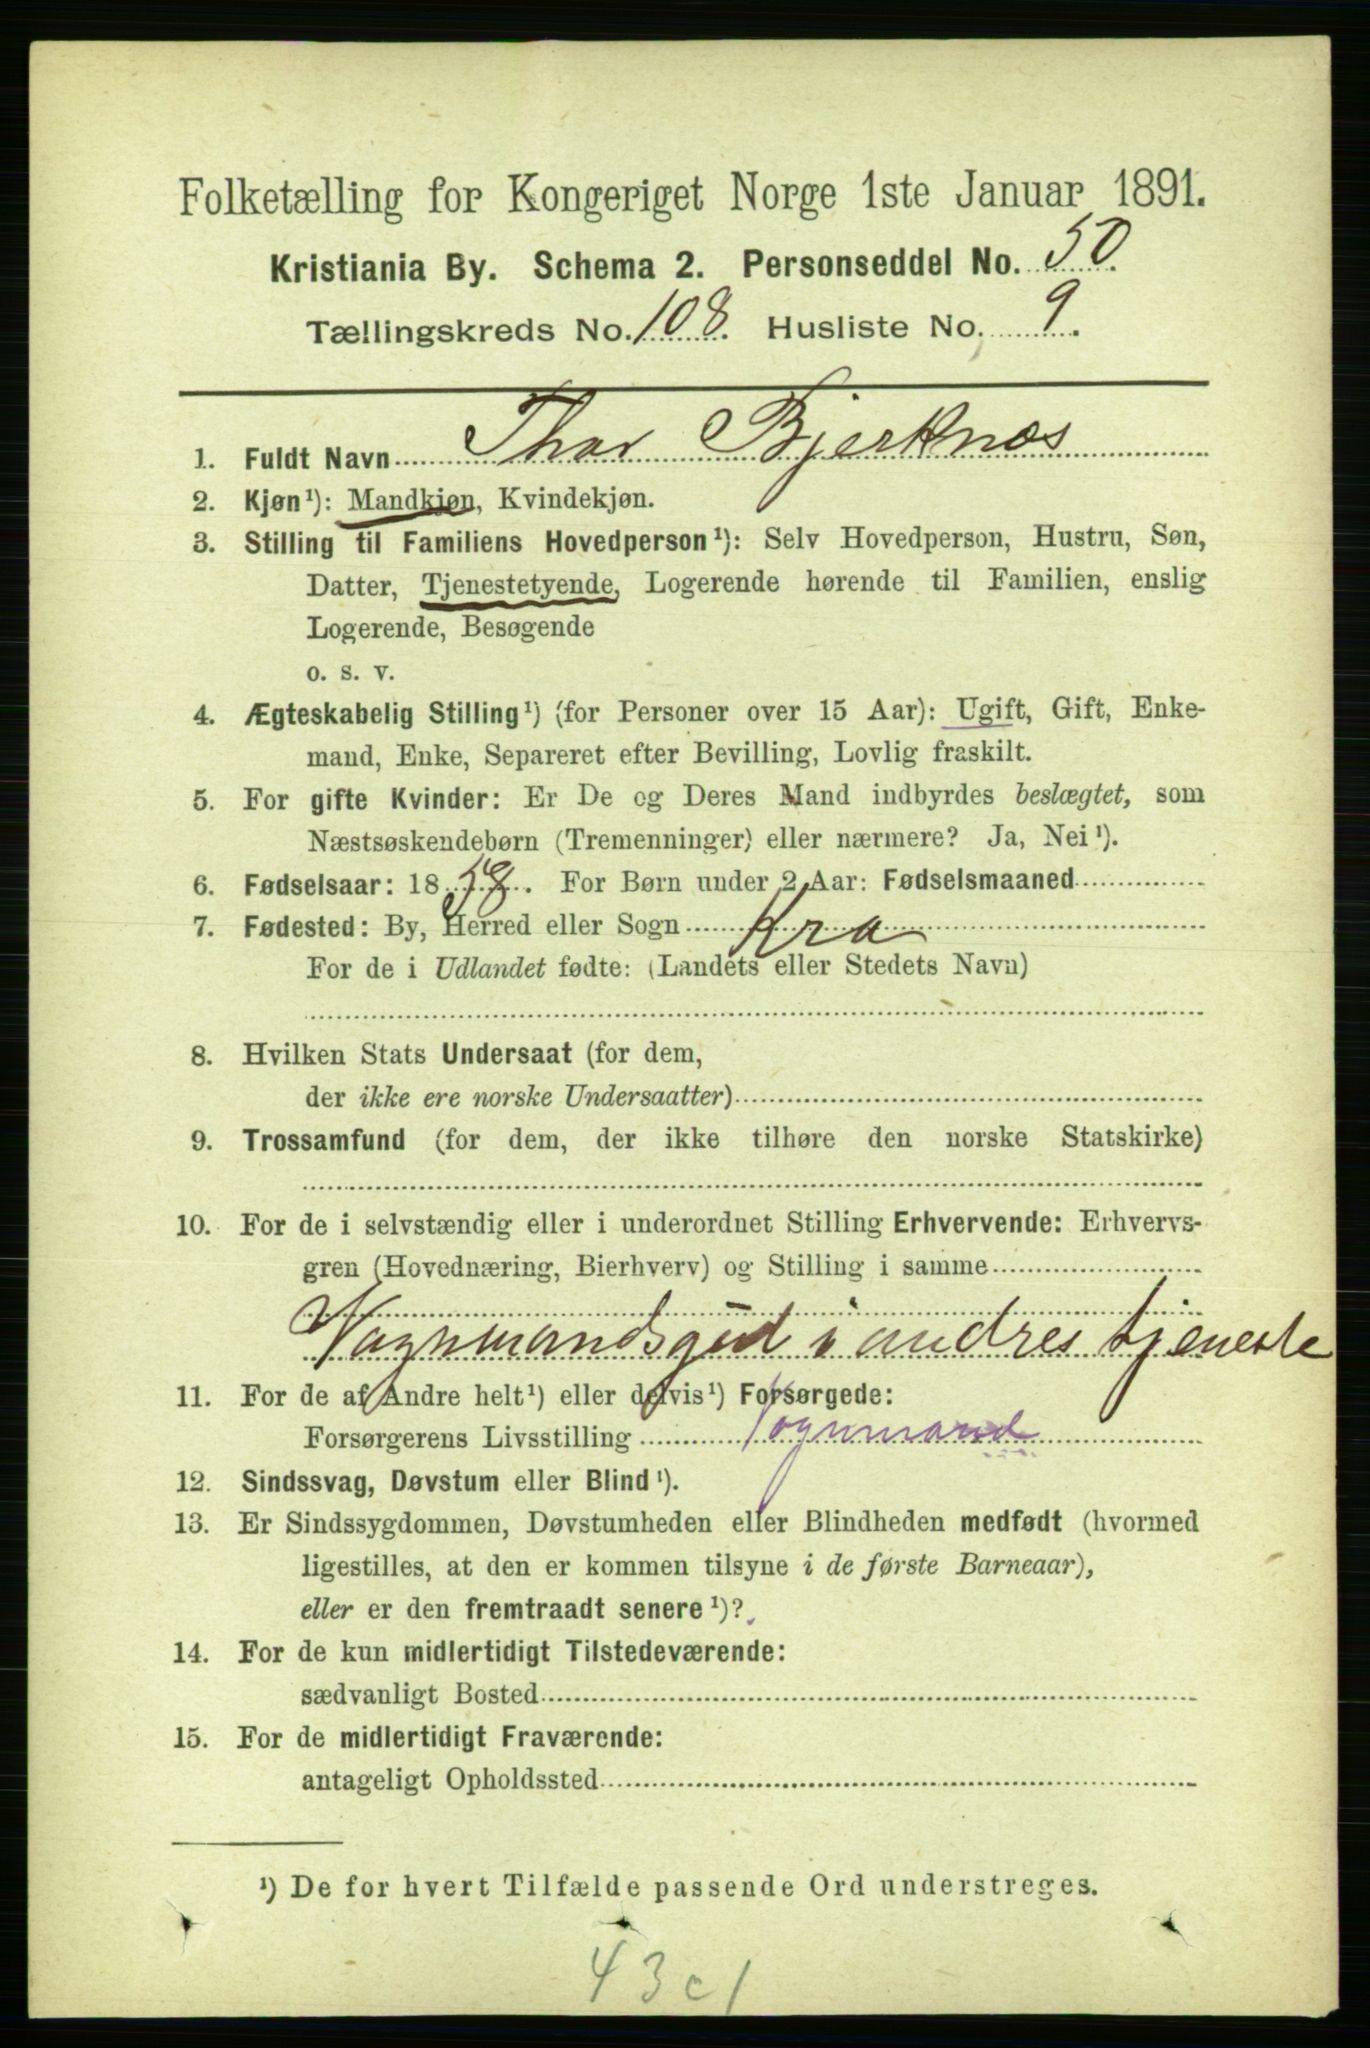 Folketælling for Kongeriget Norge 1ste Januar 1891.
Kristiania By. Schema 2. Personseddel No. 50.
Tællingskreds No. 108. Husliste No. 9.
1. Fuldt Navn Thor Bjerknæs
2. Kjøn¹): Mandkjøn, Kvindekjøn.
3. Stilling til Familiens Hovedperson¹): Selv Hovedperson, Hustru, Søn,
Datter, Tjenestetyende, Logerende hørende til Familien, enslig
Logerende, Besøgende
o. s. v.
4. Ægteskabelig Stilling¹) (for Personer over 15 Aar): Ugift, Gift, Enke-
mand, Enke, Separeret efter Bevilling, Lovlig fraskilt.
5. For gifte Kvinder: Er De og Deres Mand indbyrdes beslægtet, som
Næstsøskendebørn (Tremenninger) eller nærmere? Ja, Nei¹).
6. Fødselsaar: 1858. For Børn under 2 Aar: Fødselsmaaned
7. Fødested: By, Herred eller Sogn Kra
For de i Udlandet fødte: (Landets eller Stedets Navn)
8. Hvilken Stats Undersaat (for dem,
der ikke ere norske Undersaatter)
9. Trossamfund (for dem, der ikke tilhøre den norske Statskirke)
10. For de i selvstændig eller i underordnet Stilling Erhvervende: Erhvervs-
gren (Hovednæring, Bierhverv) og Stilling i samme
Vognmandsgut i andres tjeneste
11. For de af Andre helt¹) eller delvis¹) Forsørgede:
Forsørgerens Livsstilling Vognmand
12. Sindssvag, Døvstum eller Blind¹).
13. Er Sindssygdommen, Døvstumheden eller Blindheden medfødt (hvormed
ligestilles, at den er kommen tilsyne i de første Barneaar),
eller er den fremtraadt senere¹)?
14. For de kun midlertidigt Tilstedeværende:
sædvanligt Bosted
15. For de midlertidigt Fraværende:
antageligt Opholdssted
¹) De for hvert Tilfælde passende Ord understreges.
43c1